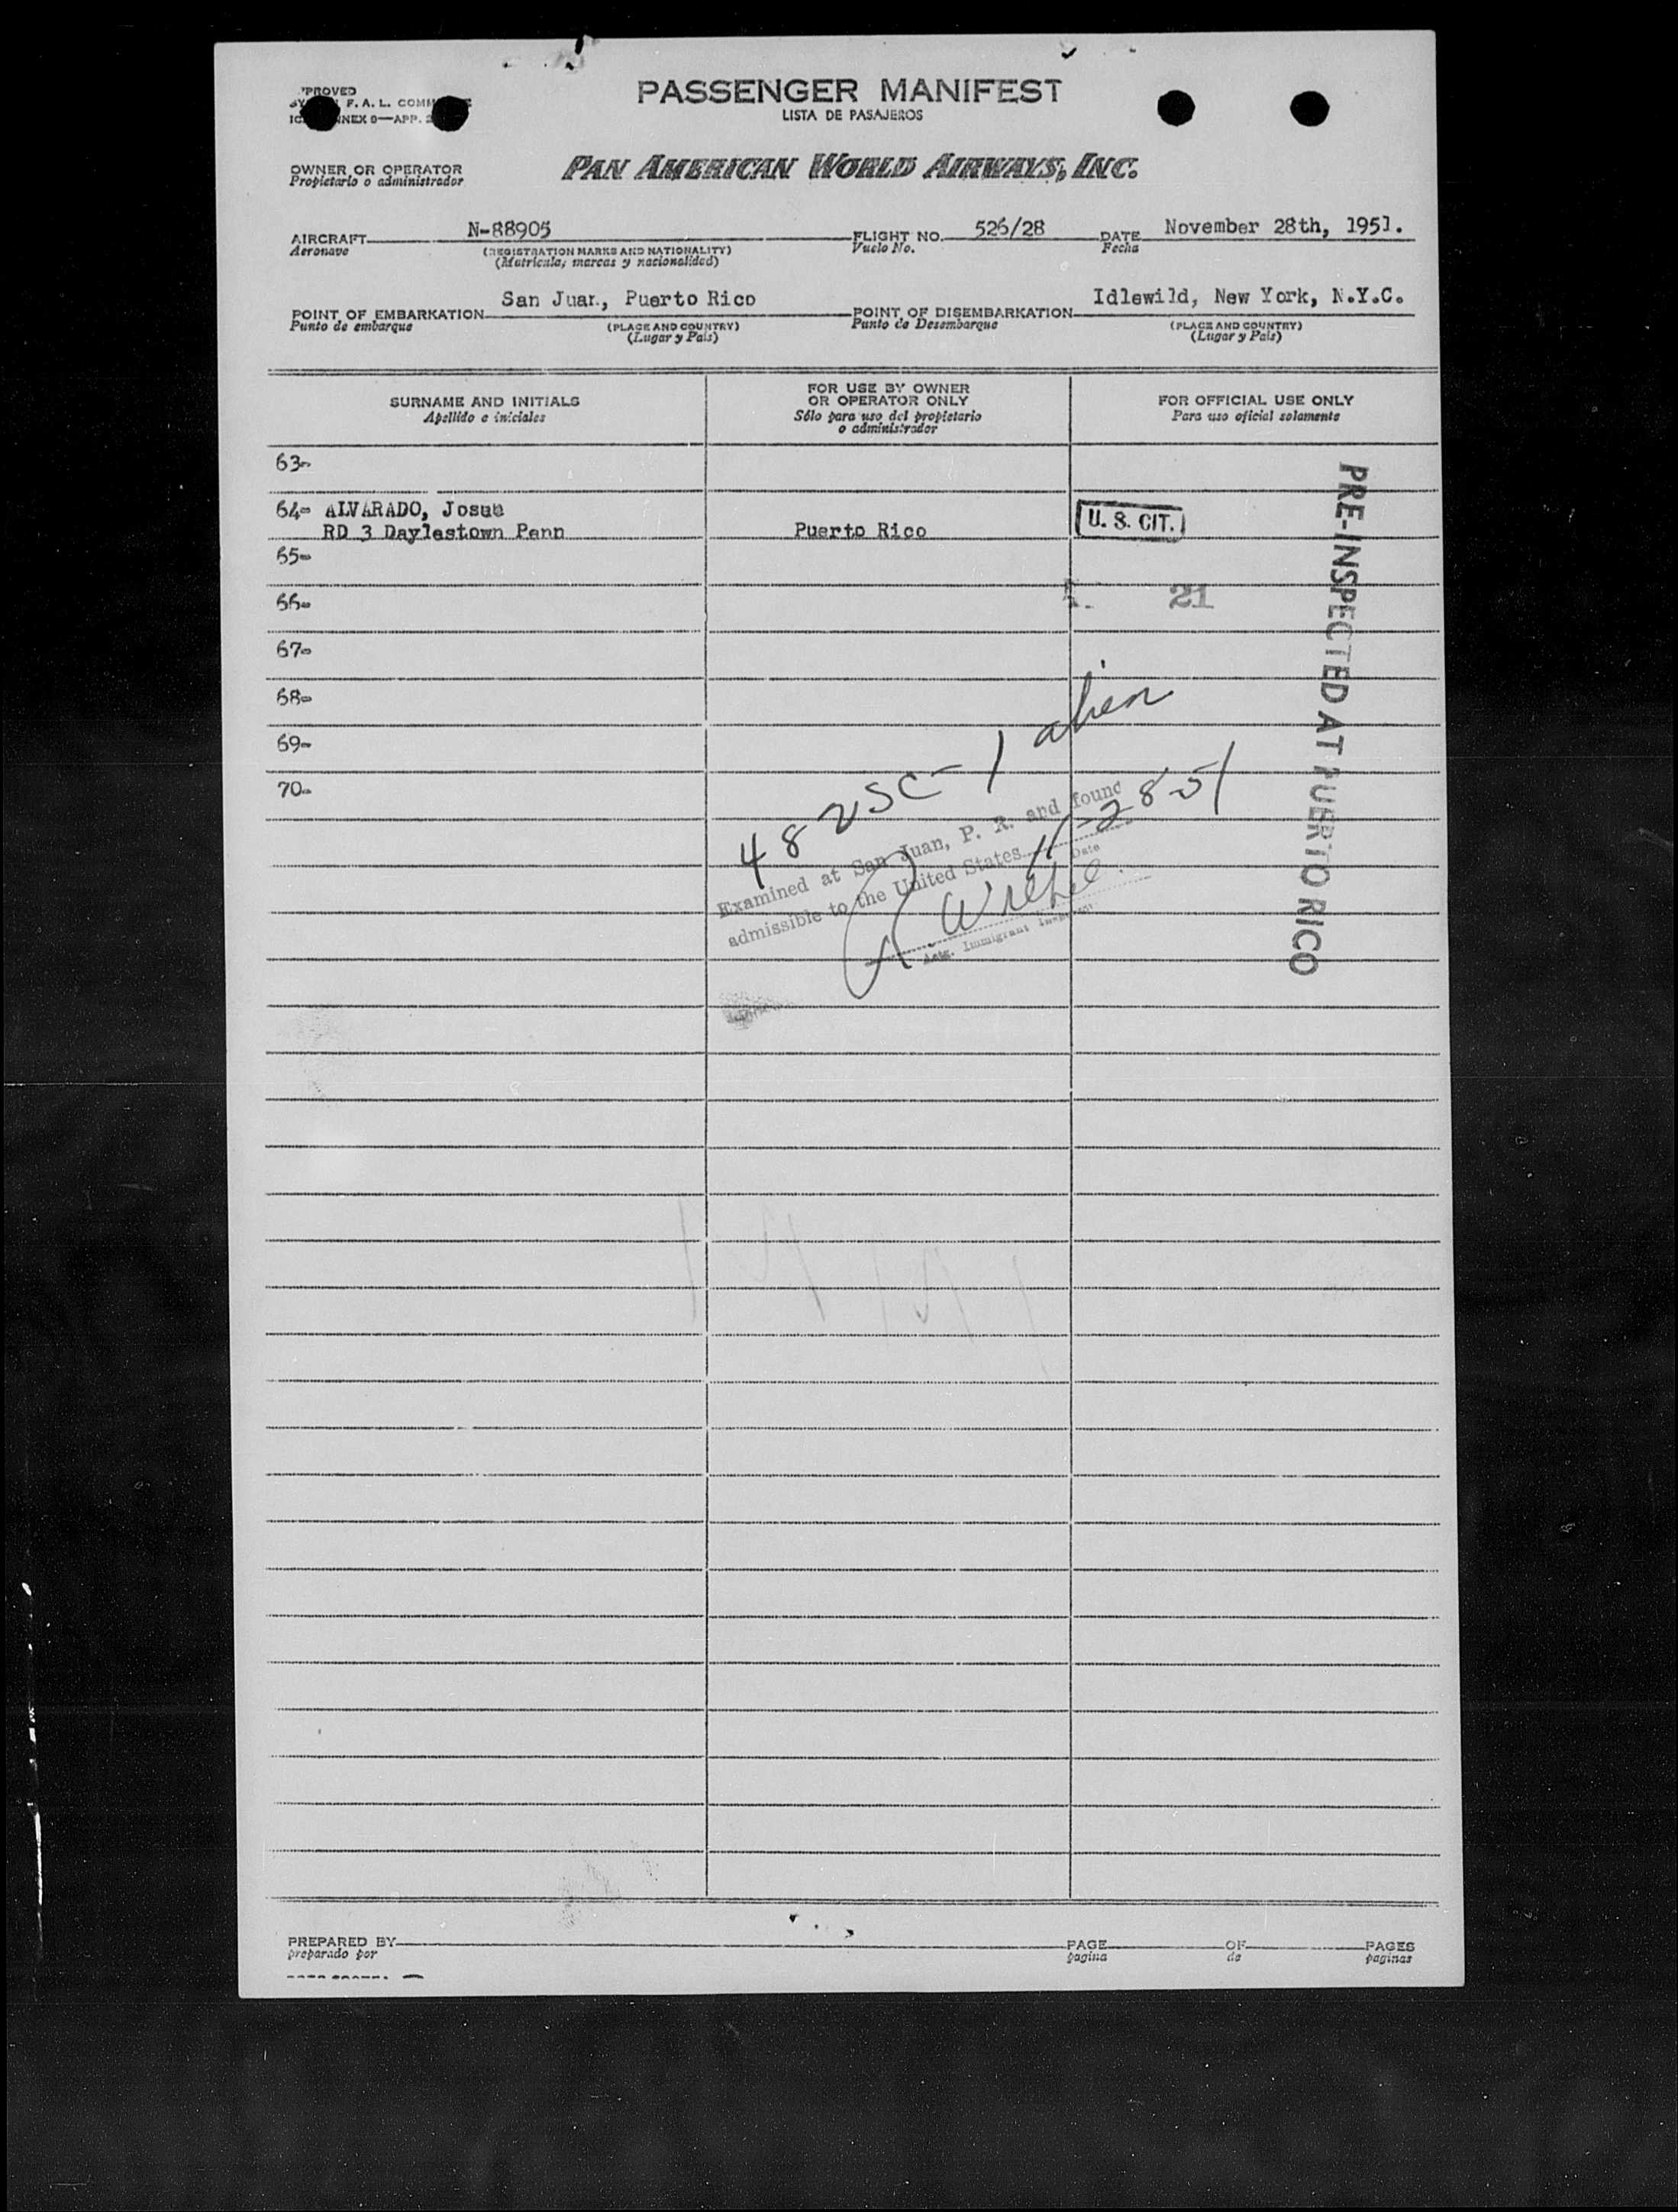 PASSENGER MANIFEST
LISTA DE PASAJEROS
F. A. L.
9—APP.
OWNER OR OPERATOR
Propietario o administrador
PAN AMERICAN WORLD AIRWAYS, INC.
AIRCRAFT N-88905 FLIGHT NO. 526/28 DATE November 28th, 1951.
Aeronave (REGISTRATION MARKS AND NATIONALITY) Vuelo No. Fecha
(Matricula, marcas y nacionalidad)
POINT OF EMBARKATION San Juan, Puerto Rico POINT OF DISEMBARKATION Idlewild, New York, N.Y.C.
Punto de embarque (PLACE AND COUNTRY) Punto de Desembarque (PLACE AND COUNTRY)
(Lugar y País) (Lugar y País)
SURNAME AND INITIALS
Apellido e iniciales
FOR USE BY OWNER
OR OPERATOR ONLY
Sólo para uso del propietario
o administrador
FOR OFFICIAL USE ONLY
Para uso oficial solamente
63-
64- ALVARADO, Josue
RD 3 Daylestown Penn Puerto Rico U. S. CIT.
65-
66- 21
67-
68-
69-
70-
PRE-INSPECTED AT PUERTO RICO
48 USC - 1 alien
Examined at San Juan, P. R. and found
admissible to the United States 11-28-51
Date
Actg. Immigrant Inspector
PREPARED BY PAGE OF PAGES
preparado por pagina de paginas